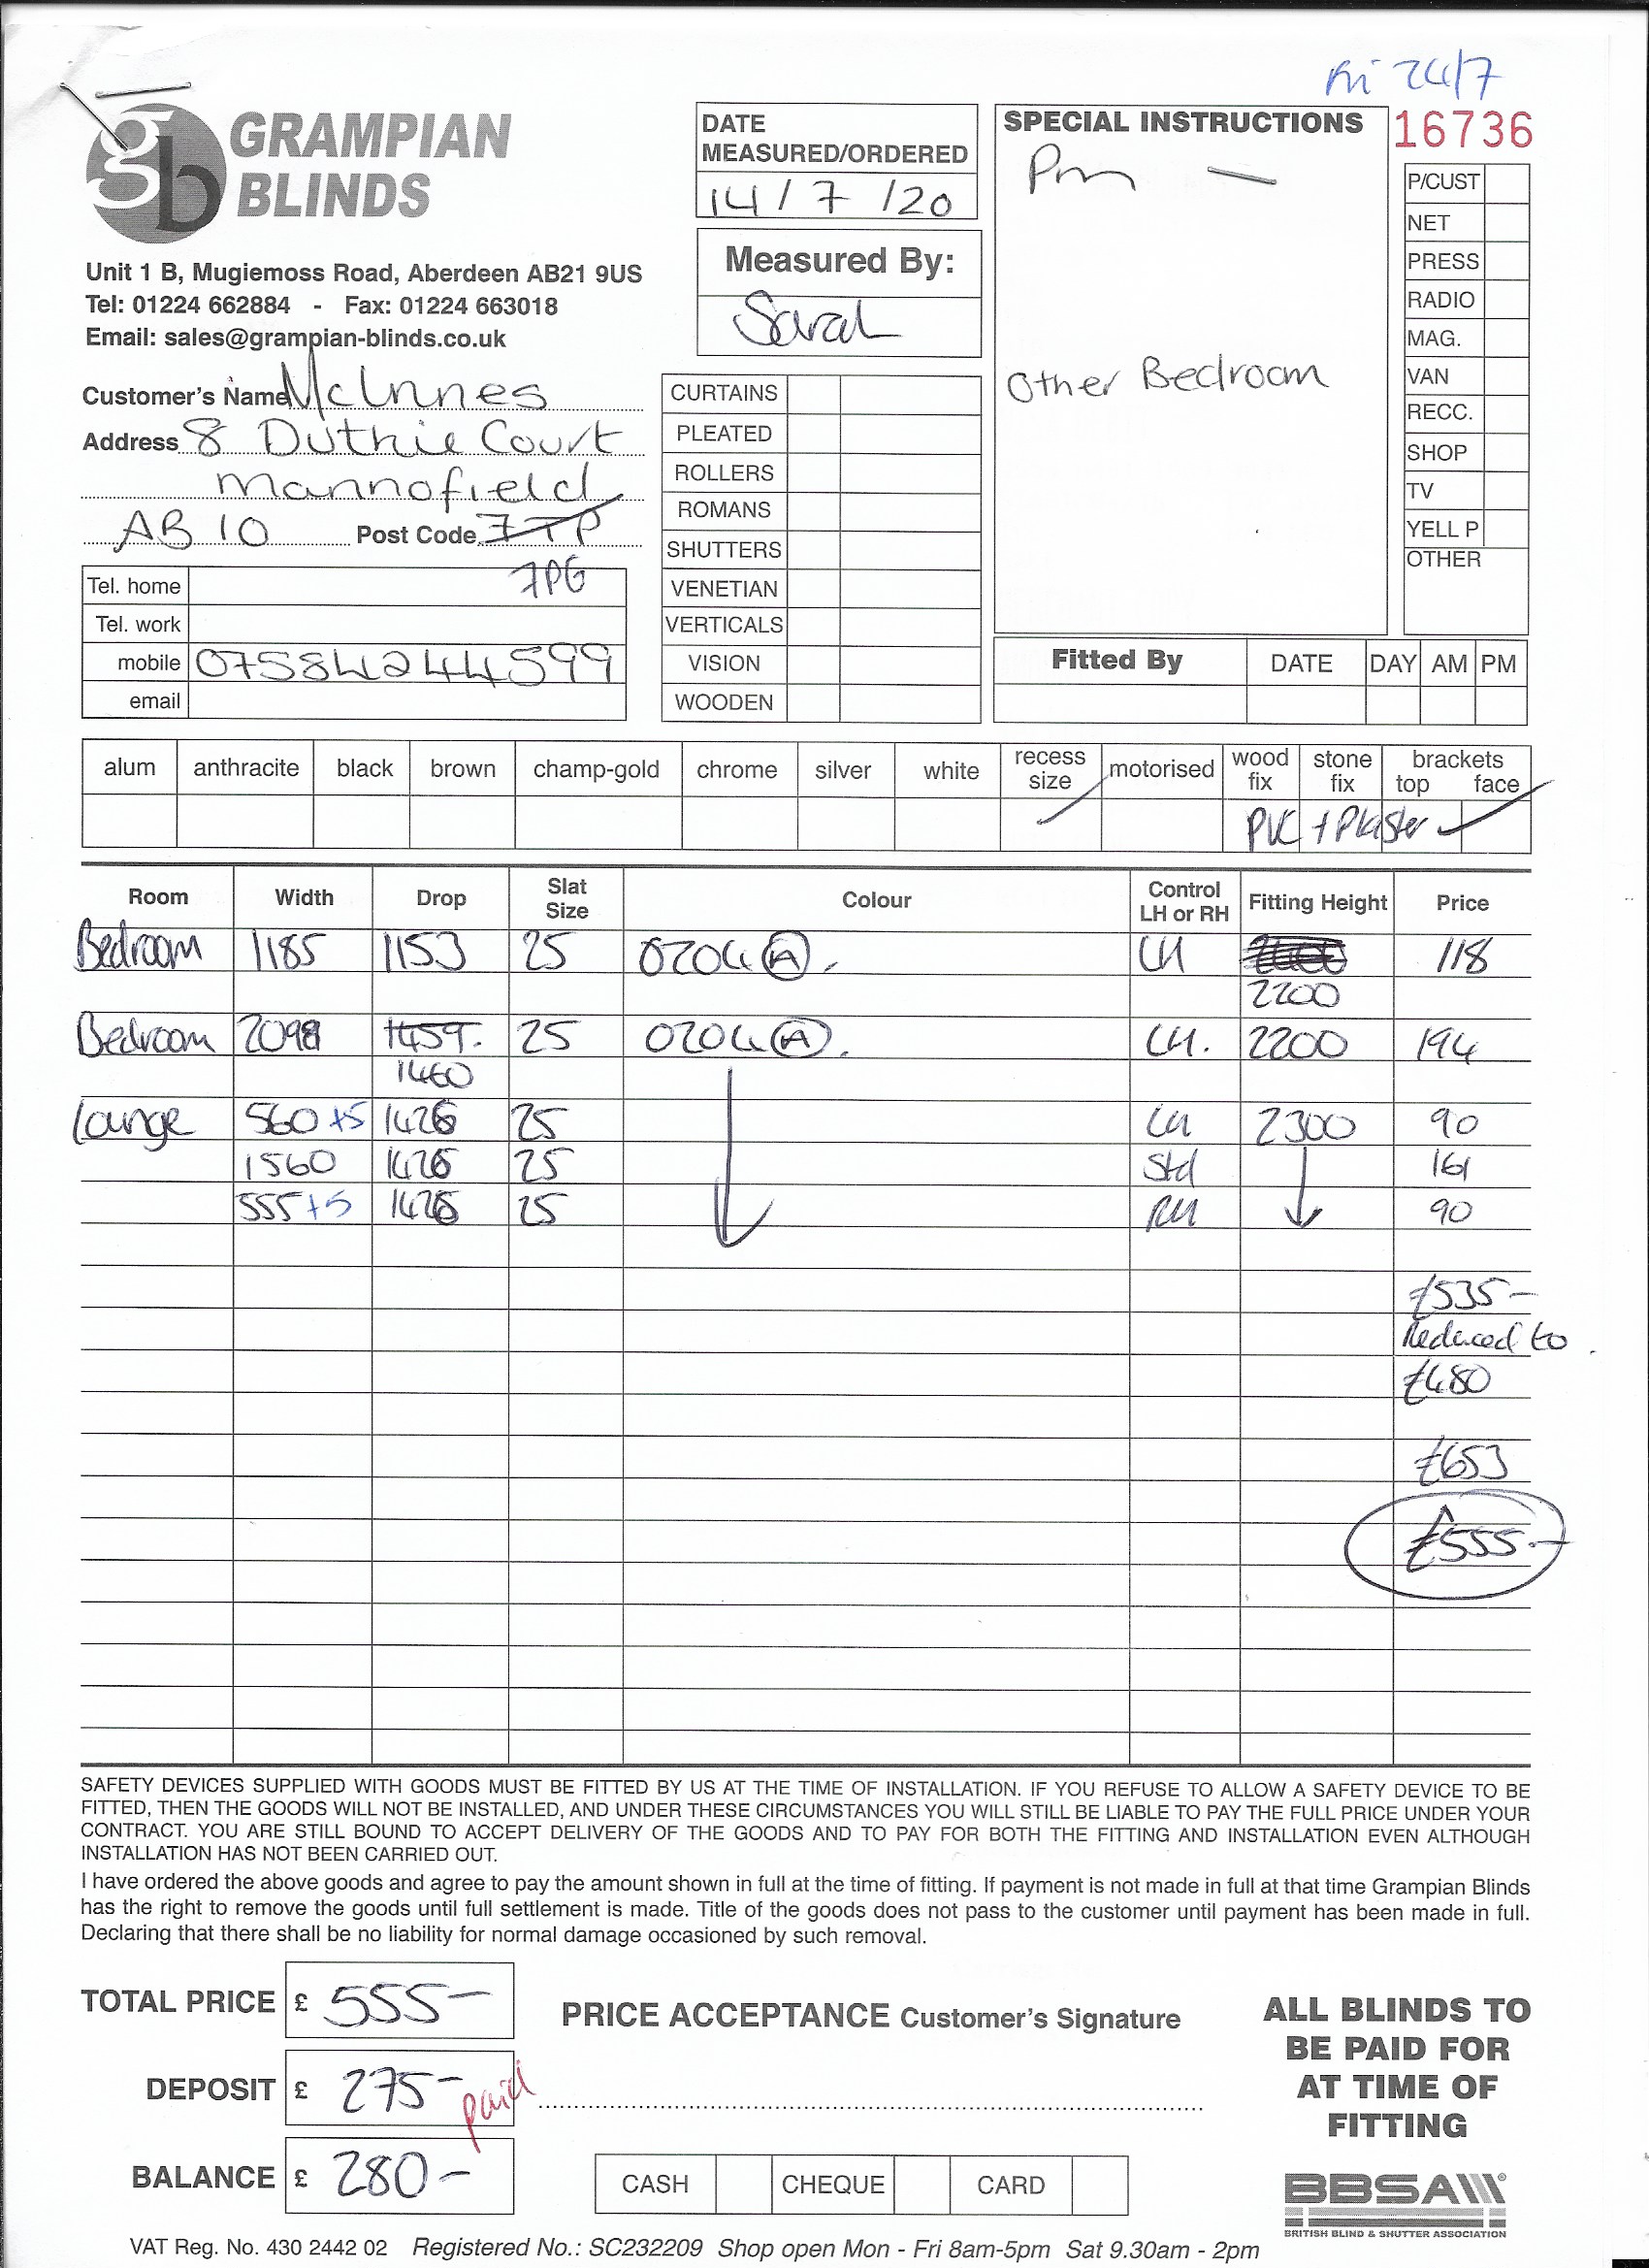 Fri 24/7
GRAMPIAN
BLINDS
gb
Unit 1 B, Mugiemoss Road, Aberdeen AB21 9US
Tel: 01224 662884 - Fax: 01224 663018
Email: sales@grampian-blinds.co.uk
Customer's Name McInnes
Address 8 Duthie Court
Mannofield
AB 10 Post Code 7TP
7PG
Tel. home
Tel. work
mobile 07584244599
email
DATE
MEASURED/ORDERED
14 / 7 /20
Measured By:
Sarah
CURTAINS
PLEATED
ROLLERS
ROMANS
SHUTTERS
VENETIAN
VERTICALS
VISION
WOODEN
SPECIAL INSTRUCTIONS
Pm –
Other Bedroom
16736
P/CUST
NET
PRESS
RADIO
MAG.
VAN
RECC.
SHOP
TV
YELL P
OTHER
Fitted By DATE DAY AM PM
alum anthracite black brown champ-gold chrome silver white recess size motorised wood fix stone fix brackets top face
✓ PVC + Plaster ✓
Room Width Drop Slat Size Colour Control LH or RH Fitting Height Price
Bedroom 1185 1153 25 0204 A . LH 118
2200
Bedroom 2098 1459. 25 0204 A . LH. 2200 194
1460
Lounge 560 +5 1426 25 LH 2300 90
1560 1426 25 Std 161
555 +5 1426 25 RH 90
£535 –
Reduced to
£480
£653
£555.–
SAFETY DEVICES SUPPLIED WITH GOODS MUST BE FITTED BY US AT THE TIME OF INSTALLATION. IF YOU REFUSE TO ALLOW A SAFETY DEVICE TO BE
FITTED, THEN THE GOODS WILL NOT BE INSTALLED, AND UNDER THESE CIRCUMSTANCES YOU WILL STILL BE LIABLE TO PAY THE FULL PRICE UNDER YOUR
CONTRACT. YOU ARE STILL BOUND TO ACCEPT DELIVERY OF THE GOODS AND TO PAY FOR BOTH THE FITTING AND INSTALLATION EVEN ALTHOUGH
INSTALLATION HAS NOT BEEN CARRIED OUT.
I have ordered the above goods and agree to pay the amount shown in full at the time of fitting. If payment is not made in full at that time Grampian Blinds
has the right to remove the goods until full settlement is made. Title of the goods does not pass to the customer until payment has been made in full.
Declaring that there shall be no liability for normal damage occasioned by such removal.
TOTAL PRICE £ 555 –
DEPOSIT £ 275 – paid
BALANCE £ 280 –
PRICE ACCEPTANCE Customer's Signature
CASH CHEQUE CARD
ALL BLINDS TO
BE PAID FOR
AT TIME OF
FITTING
BBSA
BRITISH BLIND & SHUTTER ASSOCIATION
VAT Reg. No. 430 2442 02 Registered No.: SC232209 Shop open Mon - Fri 8am-5pm Sat 9.30am - 2pm